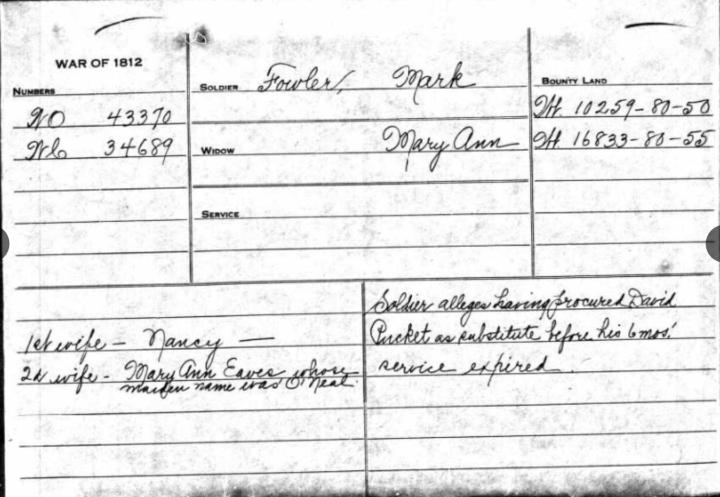 WAR OF 1812
NUMBERS
WO 43370
WC 34689
SOLDIER Fowler, Mark
WIDOW Mary Ann
SERVICE
BOUNTY LAND
Wt. 10259-80-50
Wt. 16833-80-55
1st wife - Nancy —
2d wife - Mary Ann Eaves whose
maiden name was O'Neal.
Soldier alleges having procured David
Pucket as substitute before his 6 mos.'
service expired.